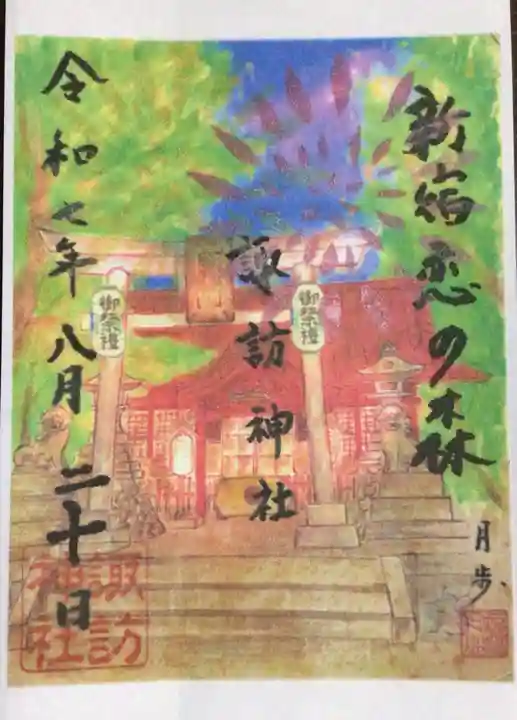 新宿恋の森
月歩
諏訪神社
御祭禮
御祭禮
令和七年八月二十日
諏訪
神社